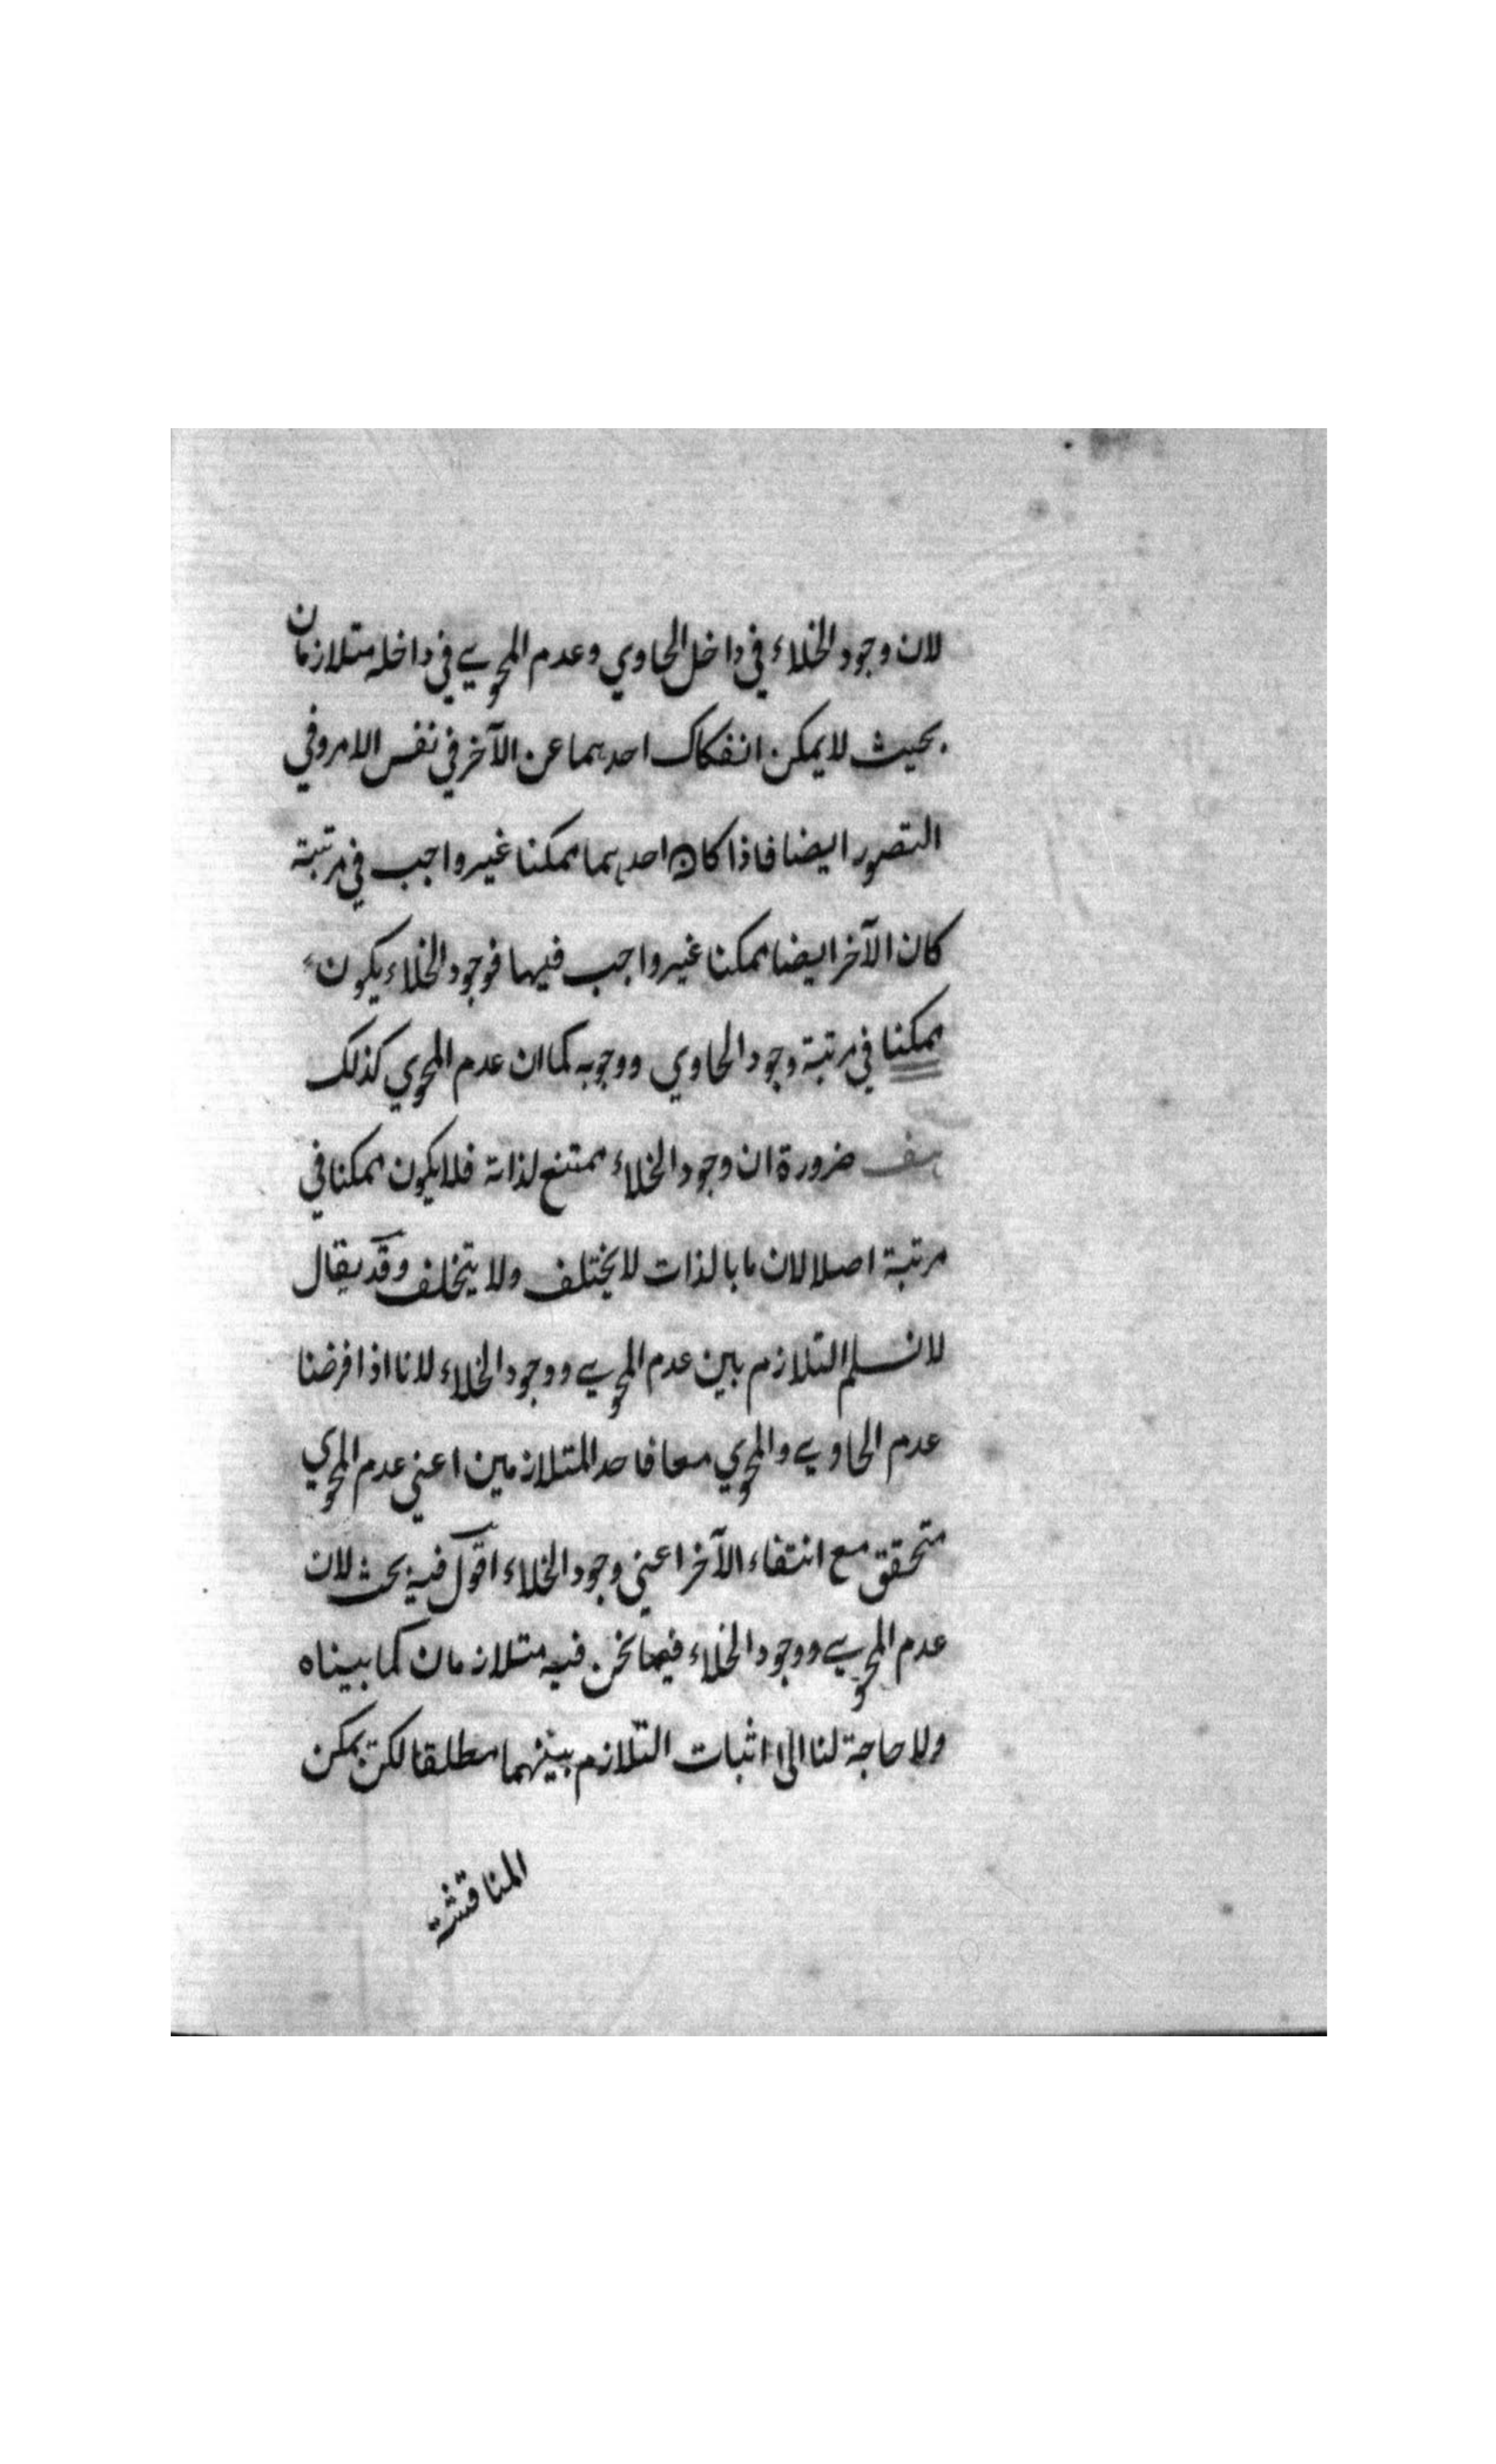 لان وجود الخلاء في داخل الحاوي وعدم المحوي في داخله متلازمان
بحيث لا يمكن انفكاك احدهما عن الآخر في نفس الامر وفي
التصور ايضا فاذا كان احدهما ممكنا غير واجب في مرتبة
كان الآخر ايضا ممكنا غير واجب فيها فوجود الخلاء يكون
ممكنا في مرتبة وجود الحاوي ووجوبه كما ان عدم المحوي كذلك
هف ضرورة ان وجود الخلاء ممتنع لذاته فلا يكون ممكنا في
مرتبة اصلا لان ما بالذات لا يختلف ولا يتخلف وقد يقال
لا نسلم التلازم بين عدم المحوي ووجود الخلاء لانا اذا فرضنا
عدم الحاوي والمحوي معا فاحد المتلازمين اعني عدم المحوي
متحقق مع انتفاء الآخر اعني وجود الخلاء اقول فيه بحث لان
عدم المحوي ووجود الخلاء فيما نحن فيه متلازمان كما بيناه
ولا حاجة لنا الى اثبات التلازم بينهما مطلقا لكن يمكن
المناقشة